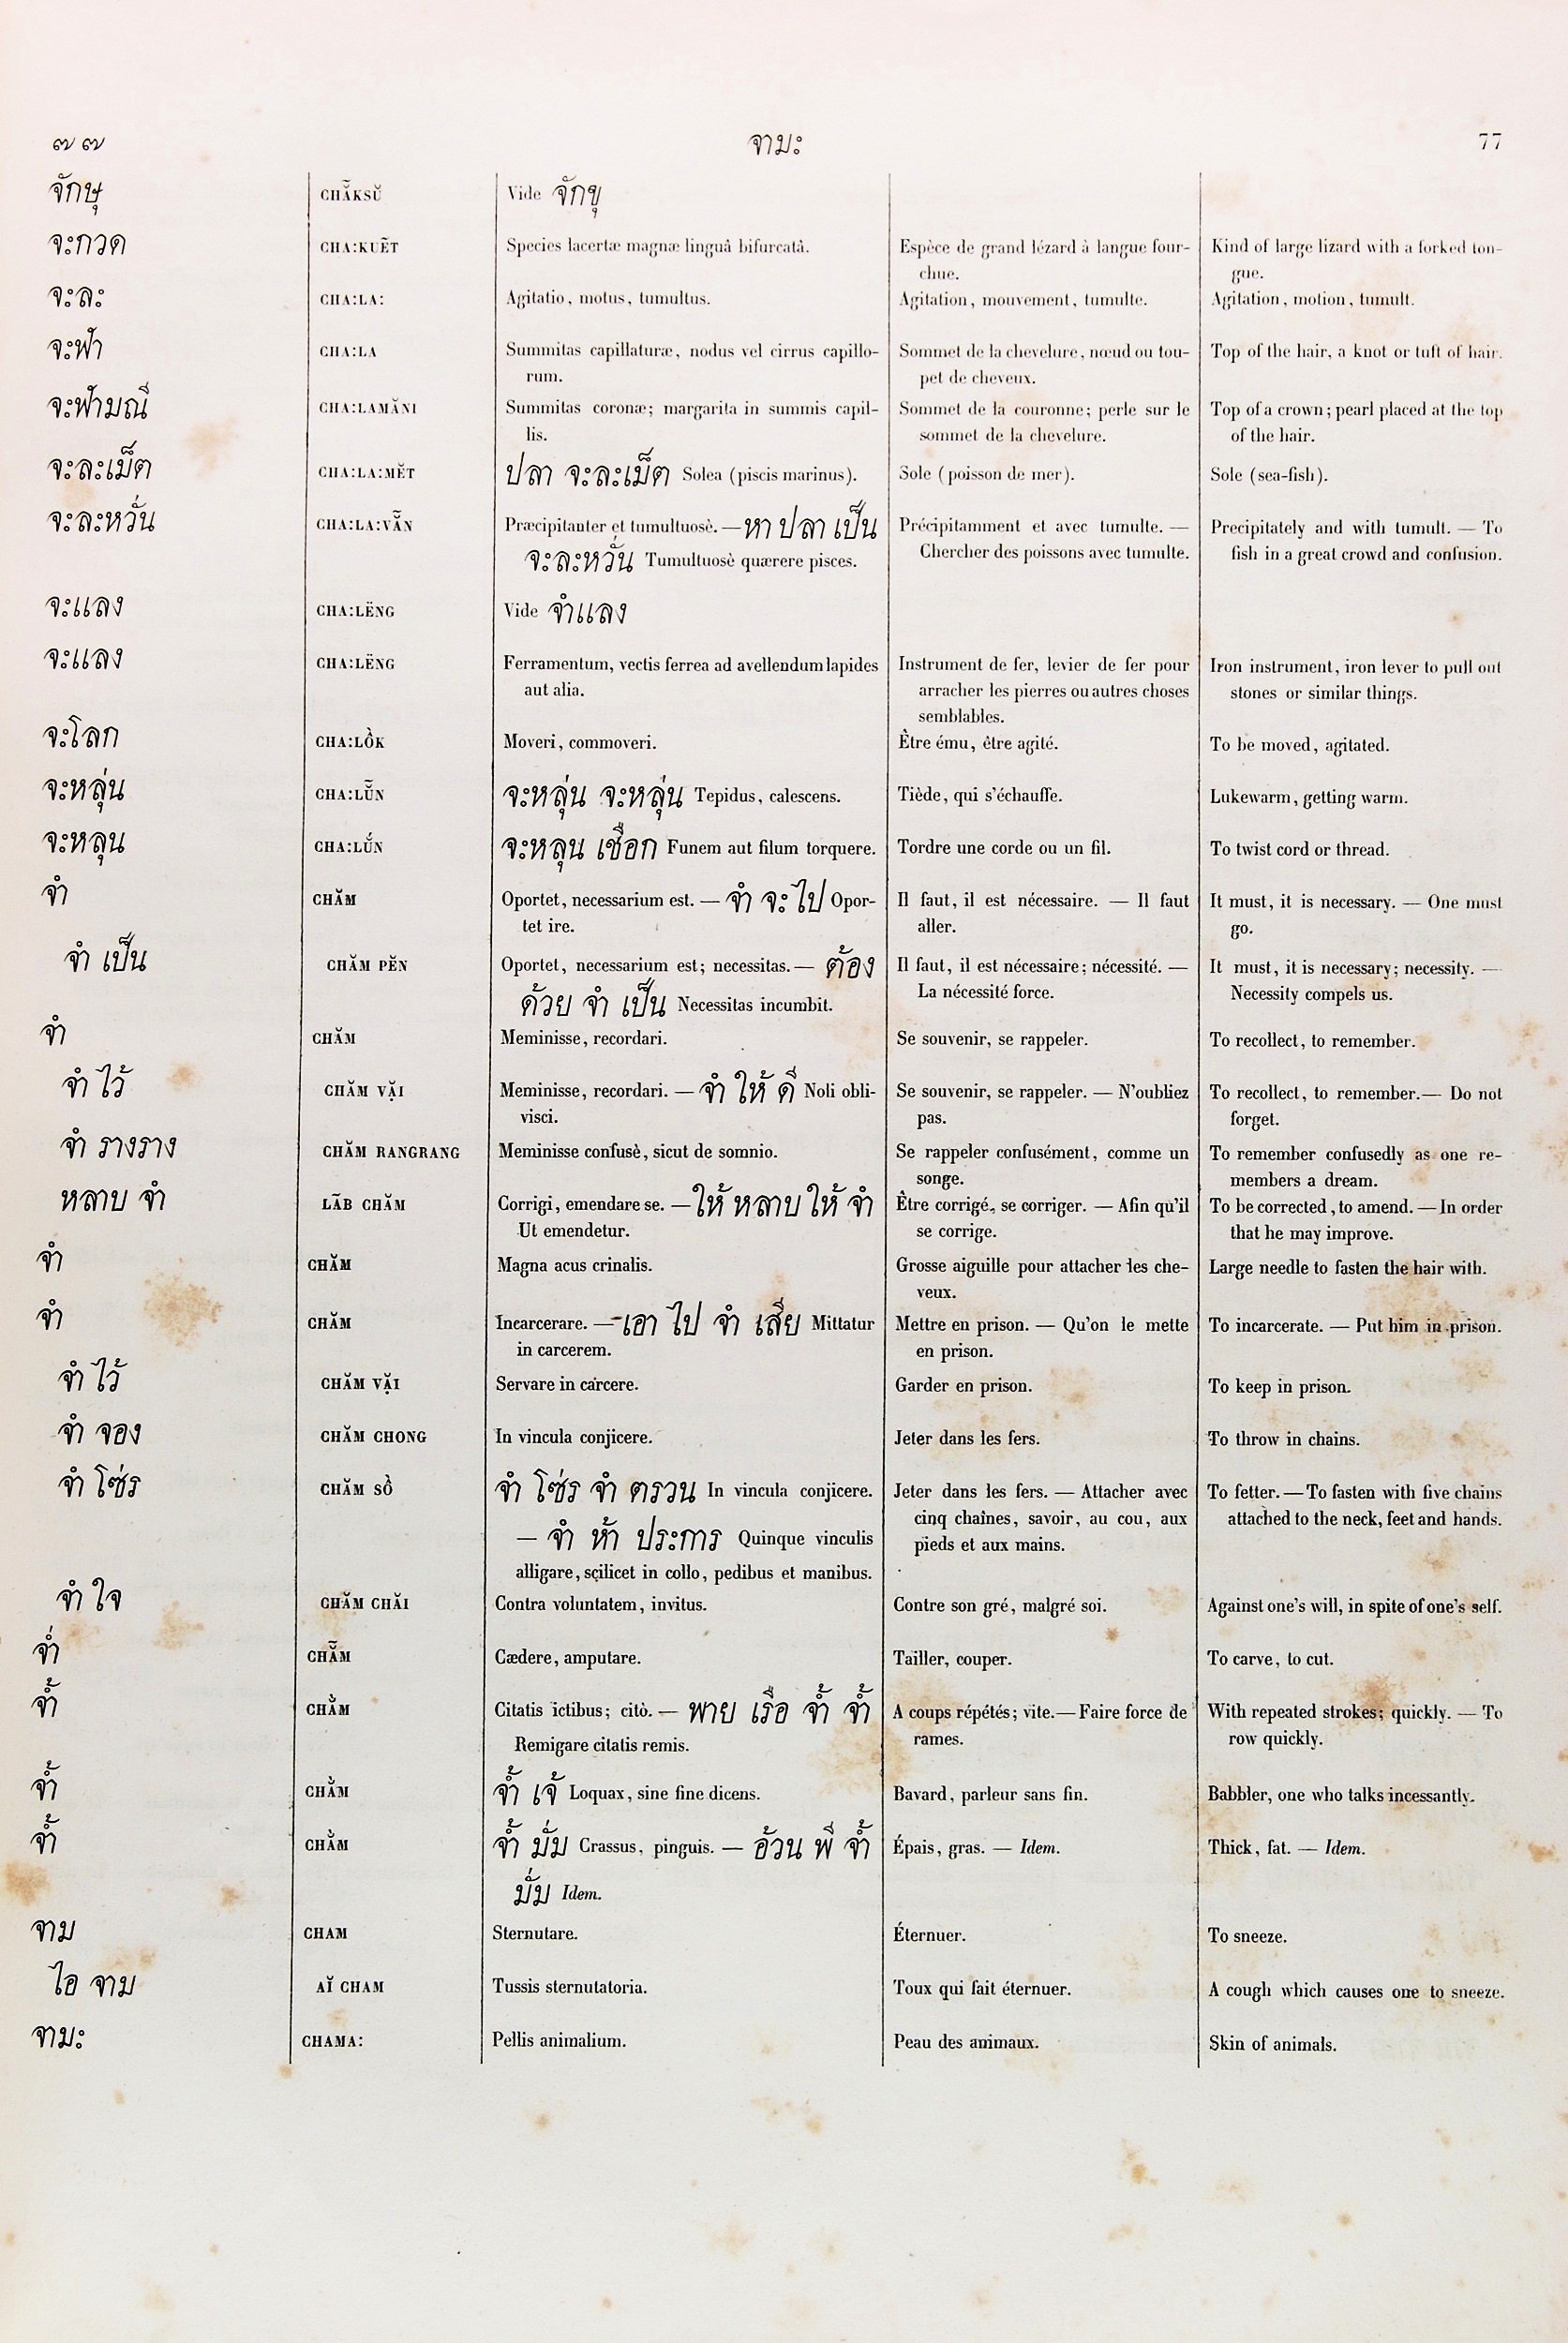 ๗๗ จามะ 77
จักษุ CHẴKSŬ Vide จักขุ
จะกวด CHA:KUËT Species lacertæ magnæ linguâ bifurcatâ. Espèce de grand lézard à langue four- Kind of large lizard with a forked ton-
chue. gue.
จะละ CHA:LA: Agitatio, motus, tumultus. Agitation, mouvement, tumulte. Agitation, motion, tumult.
จะฬา CHA:LA Summitas capillaturæ, nodus vel cirrus capillo- Sommet de la chevelure, nœud ou tou- Top of the hair, a knot or tuft of hair.
rum. pet de cheveux.
จะฬามณี CHA:LAMĂNI Summitas coronæ; margarita in summis capil- Sommet de la couronne; perle sur le Top of a crown; pearl placed at the top
lis. sommet de la chevelure. of the hair.
จะละเม็ด CHA:LA:MĔT ปลา จะละเม็ด Solea (piscis marinus). Sole (poisson de mer). Sole (sea-fish).
จะละหวั่น CHA:LA:VẴN Præcipitanter et tumultuosè. — หา ปลา เป็น Précipitamment et avec tumulte. — Precipitately and with tumult. — To
จะละหวั่น Tumultuosè quærere pisces. Chercher des poissons avec tumulte. fish in a great crowd and confusion.
จะแลง CHA:LËNG Vide จำแลง
จะแลง CHA:LËNG Ferramentum, vectis ferrea ad avellendum lapides Instrument de fer, levier de fer pour Iron instrument, iron lever to pull out
aut alia. arracher les pierres ou autres choses stones or similar things.
semblables.
จะโลก CHA:LỒK Moveri, commoveri. Être ému, être agité. To be moved, agitated.
จะหลุ่น CHA:LŬ̃N จะหลุ่น จะหลุ่น Tepidus, calescens. Tiède, qui s'échauffe. Lukewarm, getting warm.
จะหลุน CHA:LŬ́N จะหลุน เชือก Funem aut filum torquere. Tordre une corde ou un fil. To twist cord or thread.
จำ CHĂM Oportet, necessarium est. — จำ จะ ไป Opor- Il faut, il est nécessaire. — Il faut It must, it is necessary. — One must
tet ire. aller. go.
จำ เป็น CHĂM PĔN Oportet, necessarium est; necessitas. — ต้อง Il faut, il est nécessaire; nécessité. — It must, it is necessary; necessity. —
ด้วย จำ เป็น Necessitas incumbit. La nécessité force. Necessity compels us.
จำ CHĂM Meminisse, recordari. Se souvenir, se rappeler. To recollect, to remember.
จำ ไว้ CHĂM VẶI Meminisse, recordari. — จำ ให้ ดี Noli obli- Se souvenir, se rappeler. — N'oubliez To recollect, to remember. — Do not
visci. pas. forget.
จำ รางราง CHĂM RANGRANG Meminisse confusè, sicut de somnio. Se rappeler confusément, comme un To remember confusedly as one re-
songe. members a dream.
หลาบ จำ LÃB CHĂM Corrigi, emendare se. — ให้ หลาบ ให้ จำ Être corrigé, se corriger. — Afin qu'il To be corrected, to amend. — In order
Ut emendetur. se corrige. that he may improve.
จำ CHĂM Magna acus crinalis. Grosse aiguille pour attacher les che- Large needle to fasten the hair with.
veux.
จำ CHĂM Incarcerare. — เอา ไป จำ เสีย Mittatur Mettre en prison. — Qu'on le mette To incarcerate. — Put him in prison.
in carcerem. en prison.
จำ ไว้ CHĂM VẶI Servare in carcere. Garder en prison. To keep in prison.
จำ จอง CHĂM CHONG In vincula conjicere. Jeter dans les fers. To throw in chains.
จำ โซ่ร CHĂM SỒ จำ โซ่ร จำ ตรวน In vincula conjicere. Jeter dans les fers. — Attacher avec To fetter. — To fasten with five chains
— จำ ห้า ประการ Quinque vinculis cinq chaînes, savoir, au cou, aux attached to the neck, feet and hands.
alligare, scilicet in collo, pedibus et manibus. pieds et aux mains.
จำ ใจ CHĂM CHĂI Contra voluntatem, invitus. Contre son gré, malgré soi. Against one's will, in spite of one's self.
จ่ำ CHẴM Cædere, amputare. Tailler, couper. To carve, to cut.
จ้ำ CHẰM Citatis ictibus; citò. — พาย เรือ จ้ำ จ้ำ A coups répétés; vite. — Faire force de With repeated strokes; quickly. — To
Remigare citatis remis. rames. row quickly.
จ้ำ CHẰM จ้ำ เจ้ Loquax, sine fine dicens. Bavard, parleur sans fin. Babbler, one who talks incessantly.
จ้ำ CHẰM จ้ำ มั่ม Crassus, pinguis. — อ้วน พี จ้ำ Épais, gras. — Idem. Thick, fat. — Idem.
มั่ม Idem.
จาม CHAM Sternutare. Éternuer. To sneeze.
ไอ จาม AĬ CHAM Tussis sternutatoria. Toux qui fait éternuer. A cough which causes one to sneeze.
จามะ CHAMA: Pellis animalium. Peau des animaux. Skin of animals.